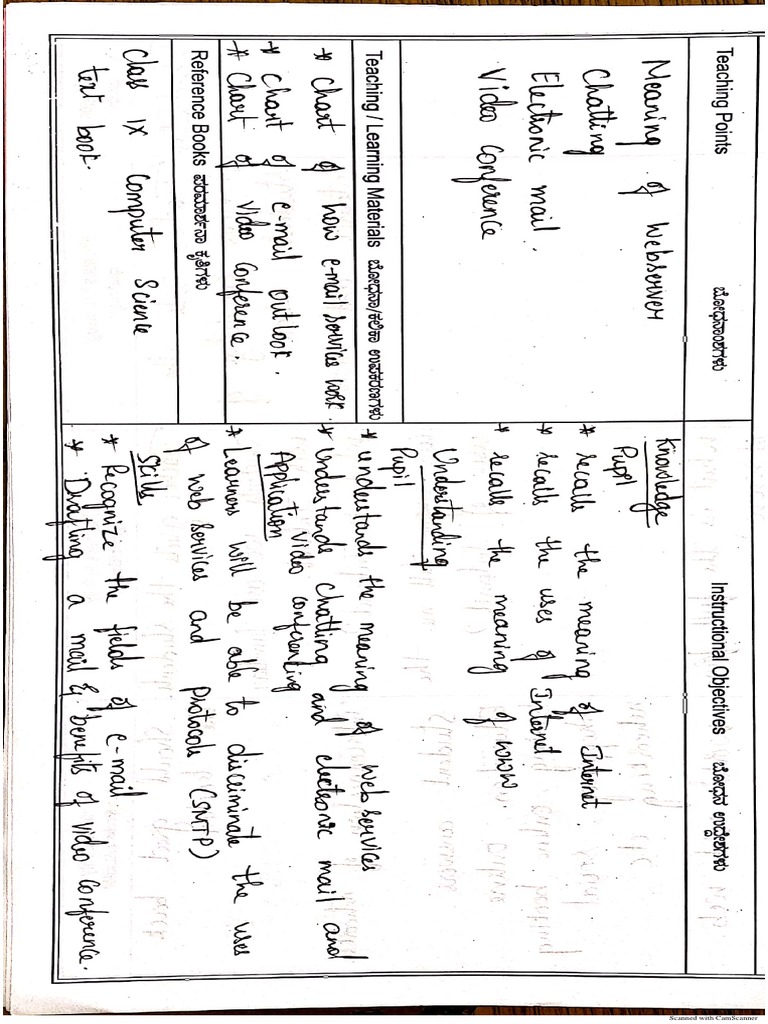 Teaching Points ಬೋಧನಾಂಶಗಳು
Meaning of Webserver
Chatting
Electronic mail.
Video Conference
Teaching / Learning Materials ಬೋಧನಾ/ಕಲಿಕಾ ಉಪಕರಣಗಳು
* Chart of how e-mail services work.
* Chart of e-mail outlook.
* Chart of video Conference.
Reference Books ಪರಾಮರ್ಶನಾ ಕೃತಿಗಳು
Class IX Computer Science
text book.
Instructional Objectives ಬೋಧನ ಉದ್ದೇಶಗಳು
Knowledge
Pupil
* recalls the meaning of Internet.
* recalls the uses of Internet
* recalls the meaning of www.
Understanding
Pupil
* understands the meaning of web services
* Understands chatting and electronic mail and
video conferencing.
Application
* Learners will be able to discriminate the uses
of web services and Protocols (SMTP)
Skills
* Recognize the fields of e-mail
* Drafting a mail & benefits of video Conference.
Scanned with CamScanner